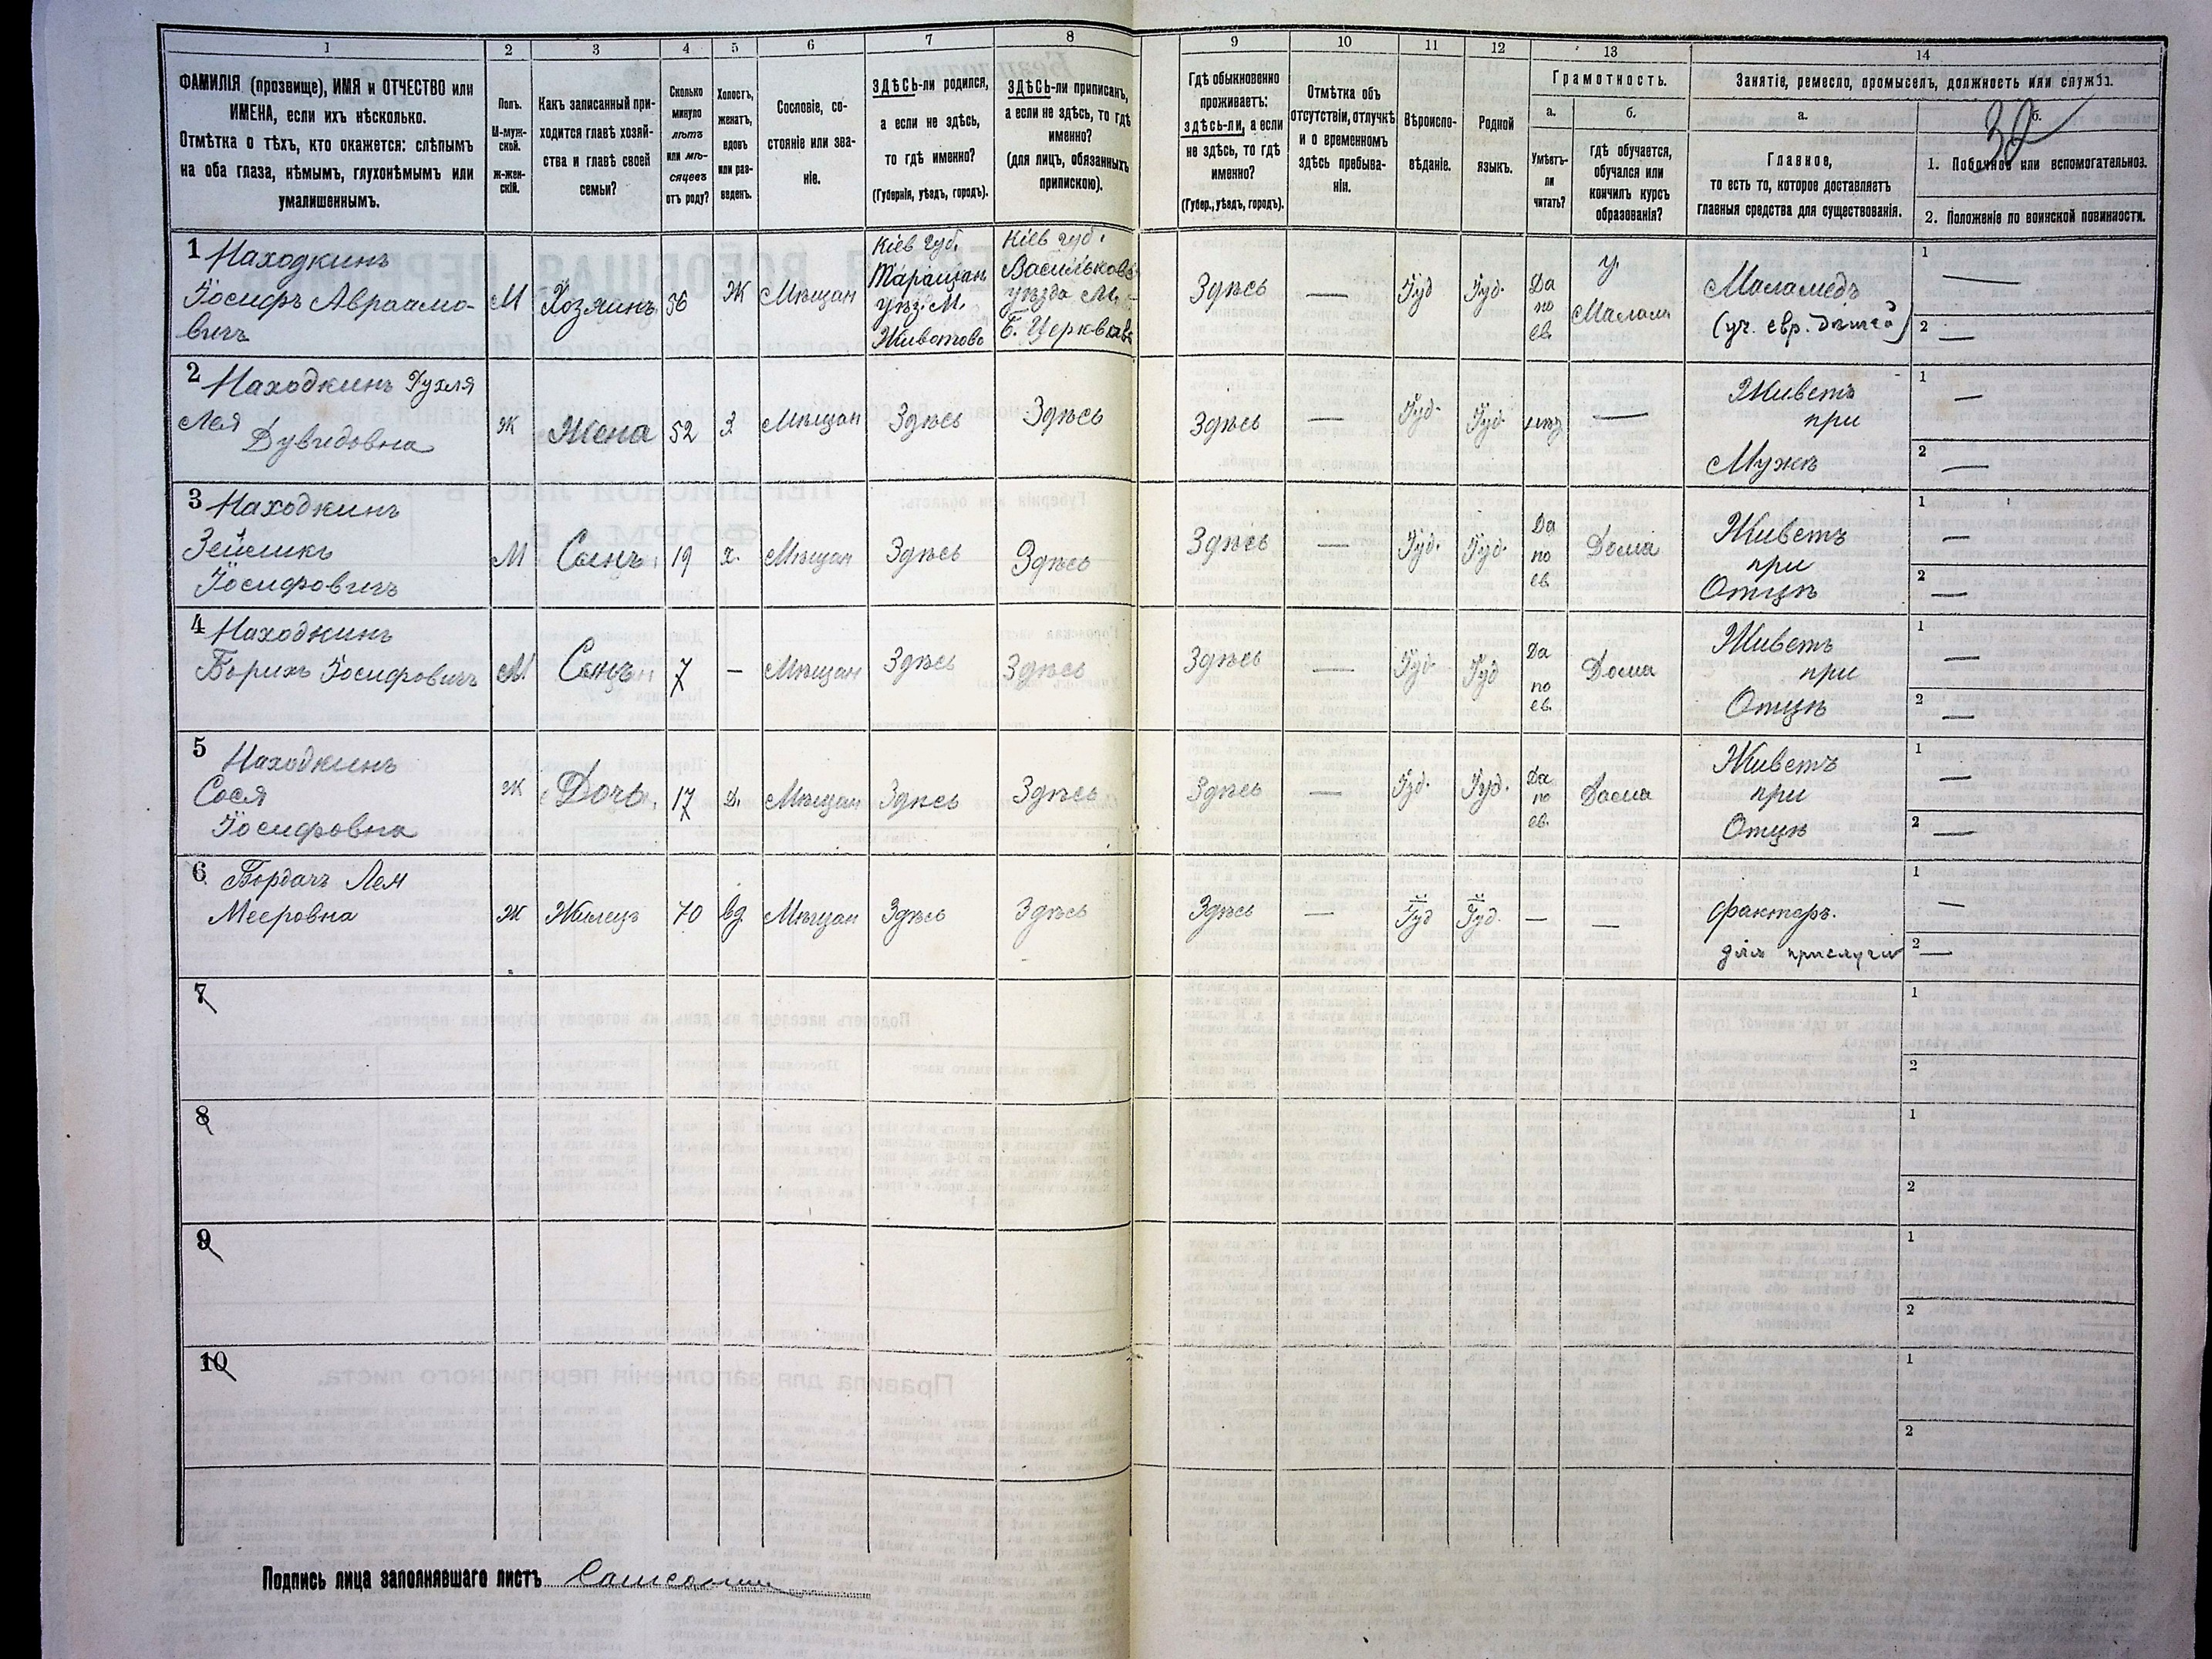 1 2 3 4 5 6 7 8 9 10 11 12 13 14
ФАМИЛІЯ (прозвище), ИМЯ и ОТЧЕСТВО или
ИМЕНА, если ихъ нѣсколько.
Отмѣтка о тѣхъ, кто окажется: слѣпымъ
на оба глаза, нѣмымъ, глухонѣмымъ или
умалишеннымъ.
Полъ.
М-муж-
ской.
Ж-жен-
скій.
Какъ записанный при-
ходится главѣ хозяй-
ства и главѣ своей
семьи?
Сколько
минуло
лѣтъ
или мѣ-
сяцевъ
отъ роду?
Холостъ,
женатъ,
вдовъ
или раз-
веденъ.
Сословіе, со-
стояніе или зва-
ніе.
ЗДѢСЬ-ли родился,
а если не здѣсь,
то гдѣ именно?
(Губернія, уѣздъ, городъ).
ЗДѢСЬ-ли приписанъ,
а если не здѣсь, то гдѣ
именно?
(для лицъ, обязанныхъ
припискою).
Гдѣ обыкновенно
проживаетъ:
здѣсь-ли, а если
не здѣсь, то гдѣ
именно?
(Губер., уѣздъ, городъ).
Отмѣтка объ
отсутствіи, отлучкѣ
и о временномъ
здѣсь пребыва-
ніи.
Вѣроиспо-
вѣданіе.
Родной
языкъ.
Грамотность.
а.
Умѣетъ-
ли
читать?
б.
гдѣ обучается,
обучался или
кончилъ курсъ
образованія?
Занятіе, ремесло, промыселъ, должность или служба.
а.
Главное,
то есть то, которое доставляетъ
главныя средства для существованія.
б.
30
1. Побочное или вспомогательное.
2. Положеніе по воинской повинности.
1 Находкинъ
Іосифъ Авраамо-
вичъ
М
Хозяинъ
56
Ж
Мѣщан
Кіев губ.
Таращан
уѣз. М.
Животово
Кіев губ.
Васильковъ
уѣзда М.
Б. Церковь
Здѣсь
—
Іуд
Іуд.
Да
по
ев.
у
Мелам
Маламедъ
(уч. евр. дѣтей)
1 —
2 —
2 Находкинъ Рухля
Лея
Дувидовна
Ж
Жена
52
З
Мѣщан
Здѣсь
Здѣсь
Здѣсь
—
Іуд.
Іуд.
нѣт
—
Живетъ
при
Мужѣ
1 —
2 —
3 Находкинъ
Зейликъ
Іосифовичъ
М
Сынъ
19
х.
Мѣщан
Здѣсь
Здѣсь
Здѣсь
—
Іуд.
Іуд.
Да
по
ев.
Дома
Живетъ
при
Отцѣ
1 —
2 —
4 Находкинъ
Борихъ Іосифовичъ
М
Сынъ
7
—
Мѣщан
Здѣсь
Здѣсь
Здѣсь
—
Іуд.
Іуд
Да
по
ев.
Дома
Живетъ
при
Отцѣ
1 —
2 —
5 Находкинъ
Сося
Іосифовна
Ж
Дочь
17
д.
Мѣщан
Здѣсь
Здѣсь
Здѣсь
—
Іуд.
Іуд.
Да
по
ев.
Дома
Живетъ
при
Отцѣ
1 —
2 —
6 Бордачъ Лея
Мееровна
Ж
Жилец
70
вд
Мѣщан
Здѣсь
Здѣсь
Здѣсь
—
Іуд
Іуд.
—
—
Факторъ.
для прислуги
1 —
2 —
7
1
2
8
1
2
9
1
2
10
1
2
Подпись лица заполнявшаго листъ